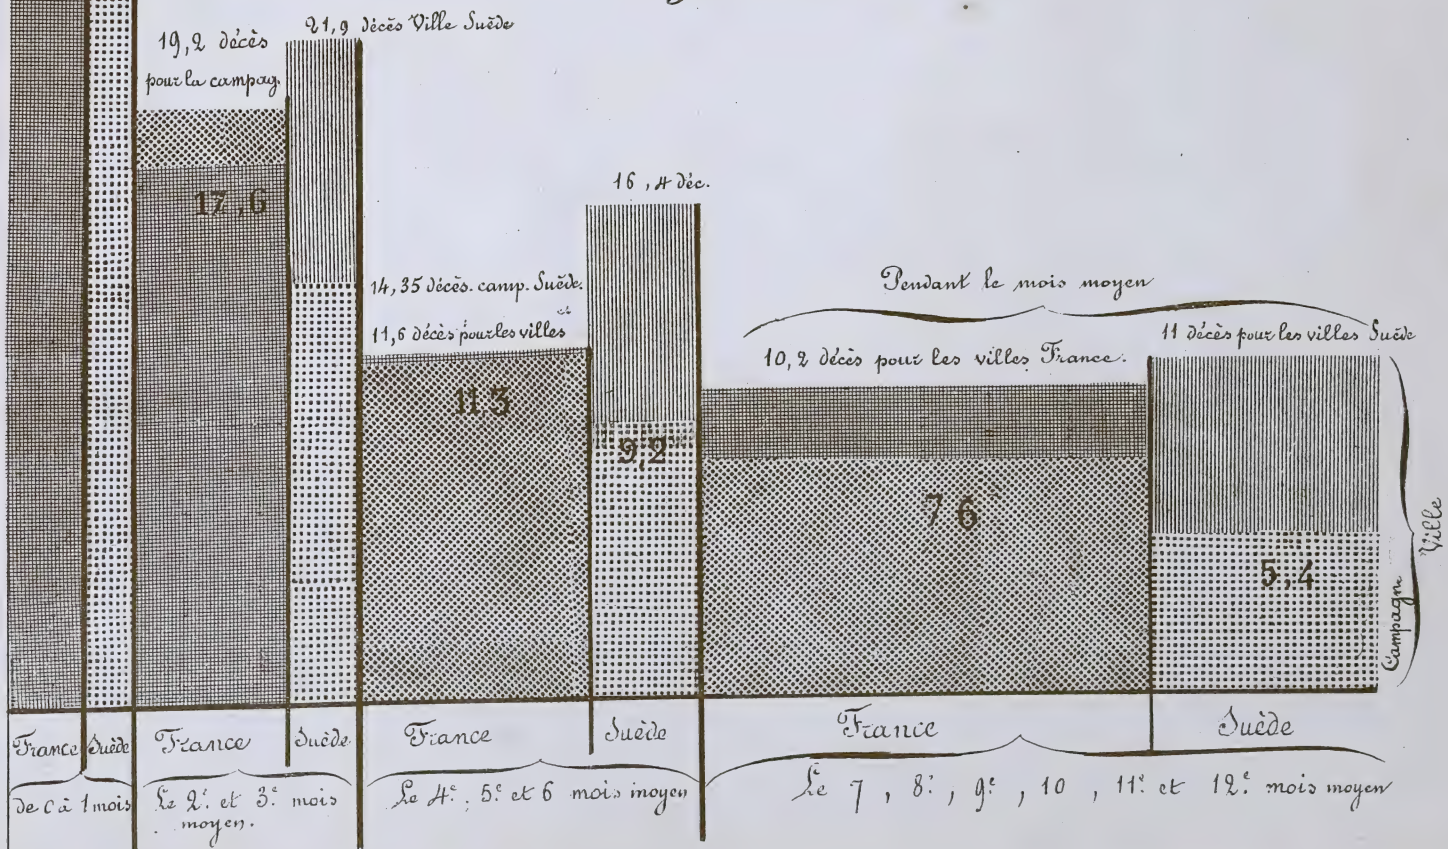 21,9 décès Ville Suède
19,2 décès
pour la campag.
17,6
16,4 déc.
14,35 décès. camp. Suède.
11,6 décès pour les villes
11 3
9,2
Pendant le mois moyen
10,2 décès pour les villes France.
11 décès pour les villes Suède
7 6
5,4
Campagn
Ville
France Suède France Suède France Suède France Suède
de 0 à 1 mois
Le 2e et 3e mois
moyen.
Le 4e, 5e et 6 mois moyen
Le 7, 8e, 9e, 10, 11e et 12e mois moyen